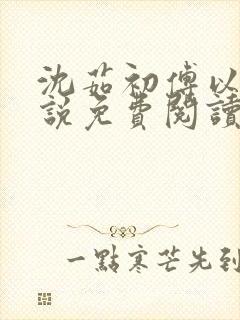 沈茹初傅以
說免費閱讀
一點寒芒先到